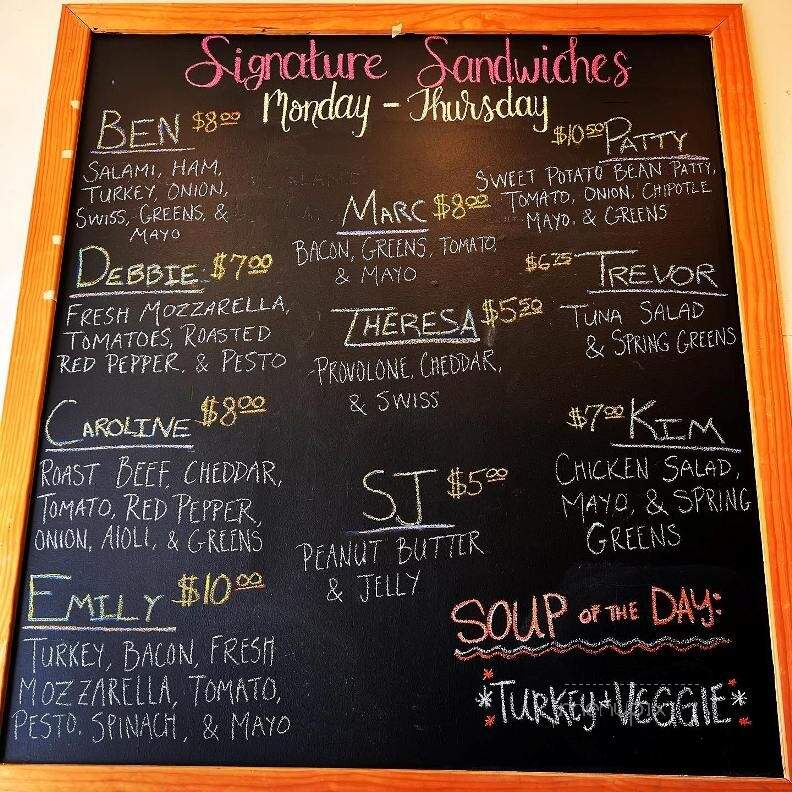 Signature Sandwiches
Monday - Thursday
BEN $8.00
SALAMI, HAM,
TURKEY, ONION,
SWISS, GREENS, &
MAYO
DEBBIE $7.00
FRESH MOZZARELLA,
TOMATOES, ROASTED
RED PEPPER, & PESTO
CAROLINE $8.00
ROAST BEEF, CHEDDAR,
TOMATO, RED PEPPER,
ONION, AIOLI, & GREENS
EMILY $10.00
TURKEY, BACON, FRESH
MOZZARELLA, TOMATO,
PESTO, SPINACH, & MAYO
MARC $8.00
BACON, GREENS, TOMATO
& MAYO
THERESA $5.50
PROVOLONE, CHEDDAR,
& SWISS
SJ $5.00
PEANUT BUTTER
& JELLY
$10.50 PATTY
SWEET POTATO BEAN PATTY,
TOMATO, ONION, CHIPOTLE
MAYO, & GREENS
$6.75 TREVOR
TUNA SALAD
& SPRING GREENS
$7.00 KIM
CHICKEN SALAD,
MAYO, & SPRING
GREENS
SOUP OF THE DAY:
*TURKEY + VEGGIE*